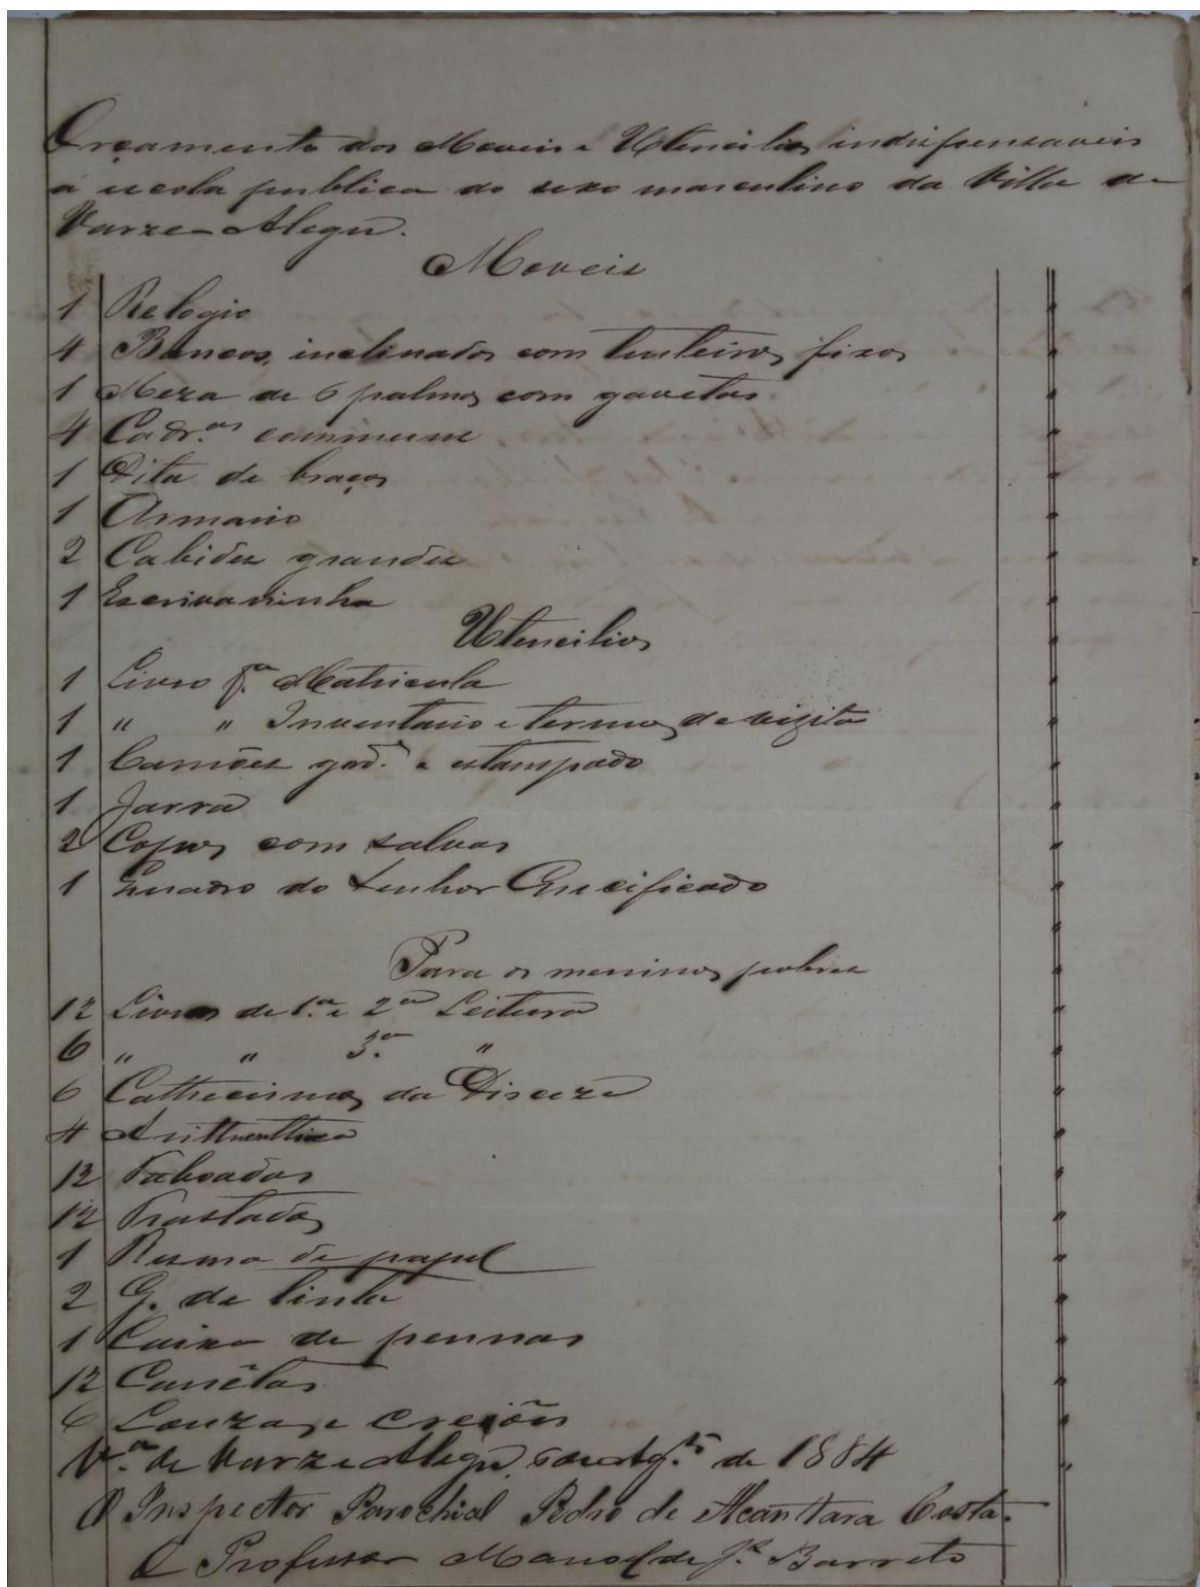 Orçamento dos Moveis e Utencilios indispensaveis
a escola publica do sexo masculino da Villa de
Varze-Alegre.
Moveis
1 Relogio
4 Bancos inclinados com tinteiros fixos
1 Meza de 6 palmos com gavetas
4 Cadr.as communs
1 Dita de braços
1 Armario
2 Cabides grandes
1 Escrivaninha
Utencilios
1 Livro p.a Matricula
1 " " Inventario e termos de vizita
1 Camões e estampado
1 Jarra
2 Copos com salvas
1 Quadro do Senhor Crucificado
Para os meninos pobres
12 Livros de 1.a e 2.a Leitura
6 " " 3.a "
6 Cathecismos da Dioceze
4 Arithmethica
12 Taboadas
12 Trastados
1 Resma de papel
2 G. de tinta
1 Caixa de pennas
12 Canêtas
6 Louzas e creiões
V.a de Varze Alegre de 1884
O Inspector Parochial Pedro de Alcantara Costa.
O Professor Manoel de J.s Barreto